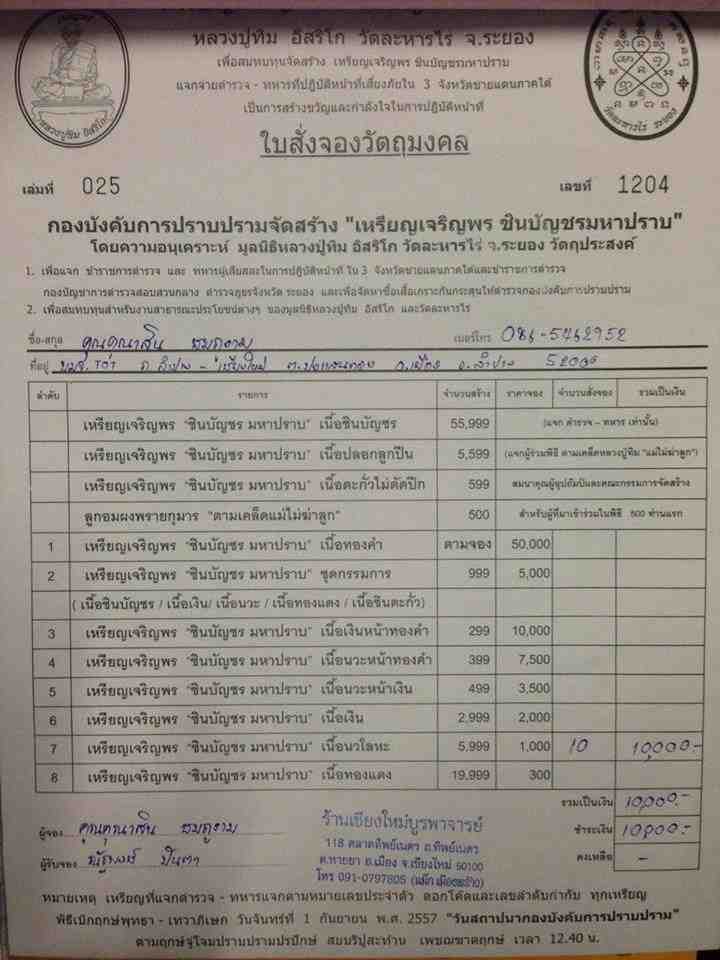 หลวงปู่ทิม อิสริโก วัดละหารไร่ จ.ระยอง
เพื่อสมทบทุนจัดสร้าง เหรียญเจริญพร ชินบัญชรมหาปราบ
แจกจ่ายตำรวจ - ทหารที่ปฏิบัติหน้าที่เสี่ยงภัยใน 3 จังหวัดชายแดนภาคใต้
เป็นการสร้างขวัญและกำลังใจในการปฏิบัติหน้าที่
หลวงปู่ทิม อิสริโก
วัดละหารไร่ ระยอง
ใบสั่งจองวัตถุมงคล
เล่มที่ 025 เลขที่ 1204
กองบังคับการปราบปรามจัดสร้าง "เหรียญเจริญพร ชินบัญชรมหาปราบ"
โดยความอนุเคราะห์ มูลนิธิหลวงปู่ทิม อิสริโก วัดละหารไร่ จ.ระยอง วัตถุประสงค์
1. เพื่อแจก ข้าราชการตำรวจ และ ทหารผู้เสียสละในการปฏิบัติหน้าที่ ใน 3 จังหวัดชายแดนภาคใต้และข้าราชการตำรวจ
กองบัญชาการตำรวจสอบสวนกลาง ตำรวจภูธรจังหวัด ระยอง และเพื่อจัดหาซื้อเสื้อเกราะกันกระสุนให้ตำรวจกองบังคับการปราบปราม
2. เพื่อสมทบทุนสำหรับงานสาธารณะประโยชน์ต่างๆ ของมูลนิธิหลวงปู่ทิม อิสริโก และวัดละหารไร่
ชื่อ-สกุล คุณคุณาสิน เบอร์โทร 086-5462952
ที่อยู่ บมจ. TOT ถ.ลำปาง - เชียงใหม่ อ.เมือง จ.ลำปาง 52000
ลำดับ รายการ จำนวนสร้าง ราคาจอง จำนวนสั่งจอง รวมเป็นเงิน
เหรียญเจริญพร "ชินบัญชร มหาปราบ" เนื้อชินบัญชร 55,999 (แจก ตำรวจ - ทหาร เท่านั้น)
เหรียญเจริญพร "ชินบัญชร มหาปราบ" เนื้อปลอกลูกปืน 5,599 (แจกผู้ร่วมพิธี ตามเคล็ดหลวงปู่ทิม "แม่ไม่ฆ่าลูก")
เหรียญเจริญพร "ชินบัญชร มหาปราบ" เนื้อตะกั่วไม่ตัดปีก 599 สมนาคุณผู้อุปถัมป์และคณะกรรมการจัดสร้าง
ลูกอมผงพรายกุมาร "ตามเคล็ดแม่ไม่ฆ่าลูก" 500 สำหรับผู้ที่มาเข้าร่วมในพิธี 500 ท่านแรก
1 เหรียญเจริญพร "ชินบัญชร มหาปราบ" เนื้อทองคำ ตามจอง 50,000
2 เหรียญเจริญพร "ชินบัญชร มหาปราบ" ชุดกรรมการ 999 5,000
( เนื้อชินบัญชร / เนื้อเงิน/ เนื้อนวะ / เนื้อทองแดง / เนื้อชินตะกั่ว)
3 เหรียญเจริญพร "ชินบัญชร มหาปราบ" เนื้อเงินหน้าทองคำ 299 10,000
4 เหรียญเจริญพร "ชินบัญชร มหาปราบ" เนื้อนวะหน้าทองคำ 399 7,500
5 เหรียญเจริญพร "ชินบัญชร มหาปราบ" เนื้อนวะหน้าเงิน 499 3,500
6 เหรียญเจริญพร "ชินบัญชร มหาปราบ" เนื้อเงิน 2,999 2,000
7 เหรียญเจริญพร "ชินบัญชร มหาปราบ" เนื้อนวโลหะ 5,999 1,000 10 10,000.-
8 เหรียญเจริญพร "ชินบัญชร มหาปราบ" เนื้อทองแดง 19,999 300
รวมเป็นเงิน 10,000.-
ผู้จอง คุณคุณาสิน ชำระเงิน 10,000.-
ผู้รับจอง ปินตา คงเหลือ -
ร้านเชียงใหม่บูรพาจารย์
118 ตลาดทิพย์เนตร ถ.ทิพย์เนตร
ต.หายยา อ.เมือง จ.เชียงใหม่ 50100
โทร 091-0797805
หมายเหตุ เหรียญที่แจกตำรวจ - ทหารแจกตามหมายเลขประจำตัว ตอกโค๊ดและเลขลำดับกำกับ ทุกเหรียญ
พิธีเบิกฤกษ์พุทธา - เทวาภิเษก วันจันทร์ที่ 1 กันยายน พ.ศ. 2557 "วันสถาปนากองบังคับการปราบปราม"
ตามฤกษ์จู่โจมปราบปรามปรปักษ์ สยบริปูสะท้าน เพชฌฆาตฤกษ์ เวลา 12.40 น.